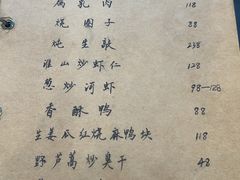 腐乳肉 118
烧圈子 88
炖生敲 238
淮山炒虾仁 128
葱炒河虾 98—128
香酥鸭 88
生姜瓜红烧麻鸭块 118
野芦蒿炒臭干 48